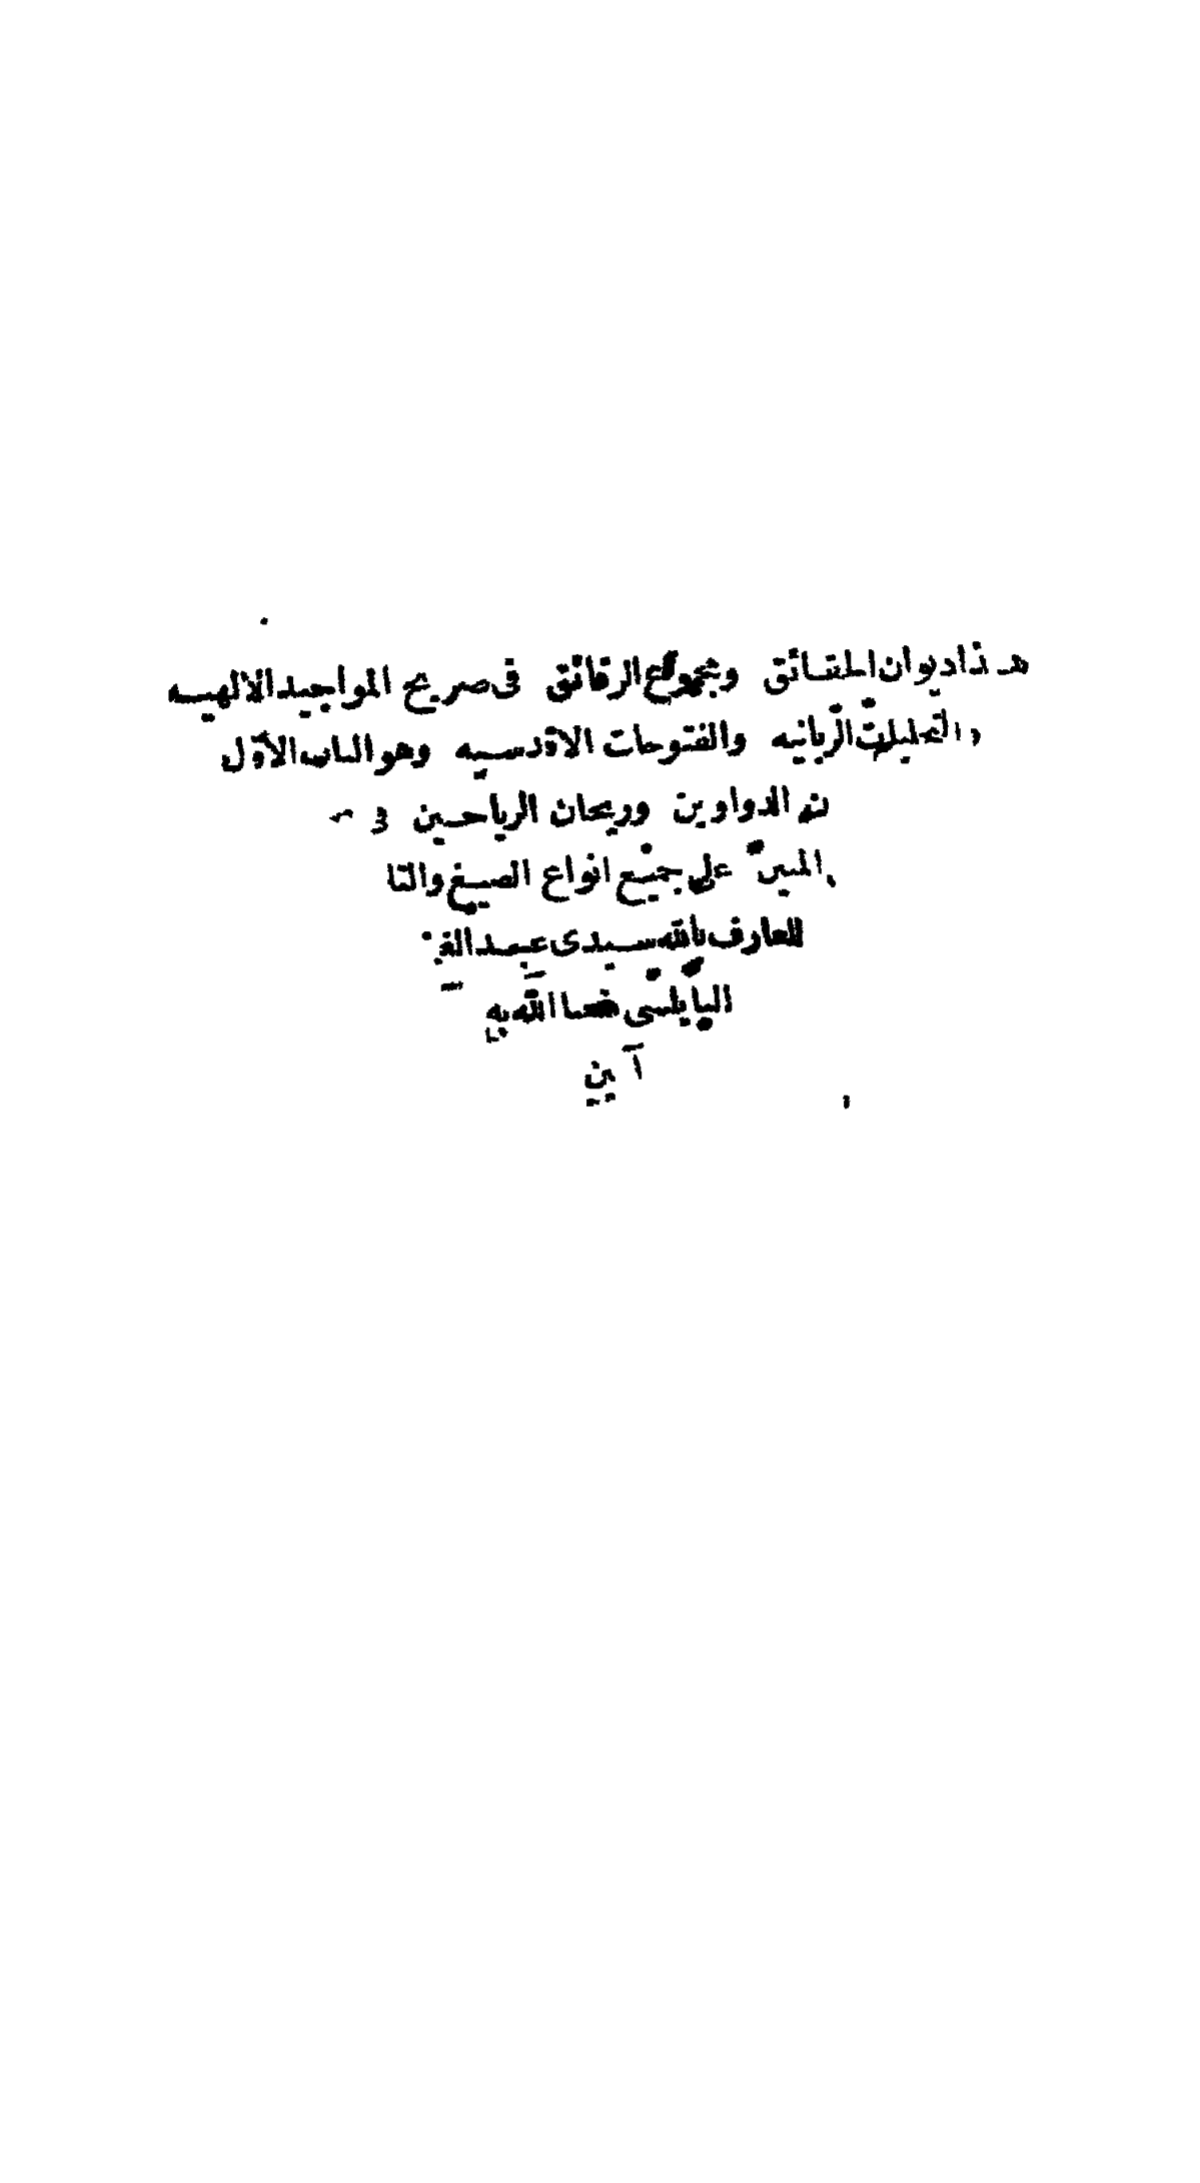 هذا ديوان الحقائق ومجموع الرقائق فى صريح المواجيد الالهيه
والتجليات الربانيه والفتوحات الاقدسيه وهو الباب الأول
الدواوين وريحان الرياحين
على جميع انواع الصيغ
للعارف بالله سيدى عبد
النابلسى نفعنا الله به
آمين